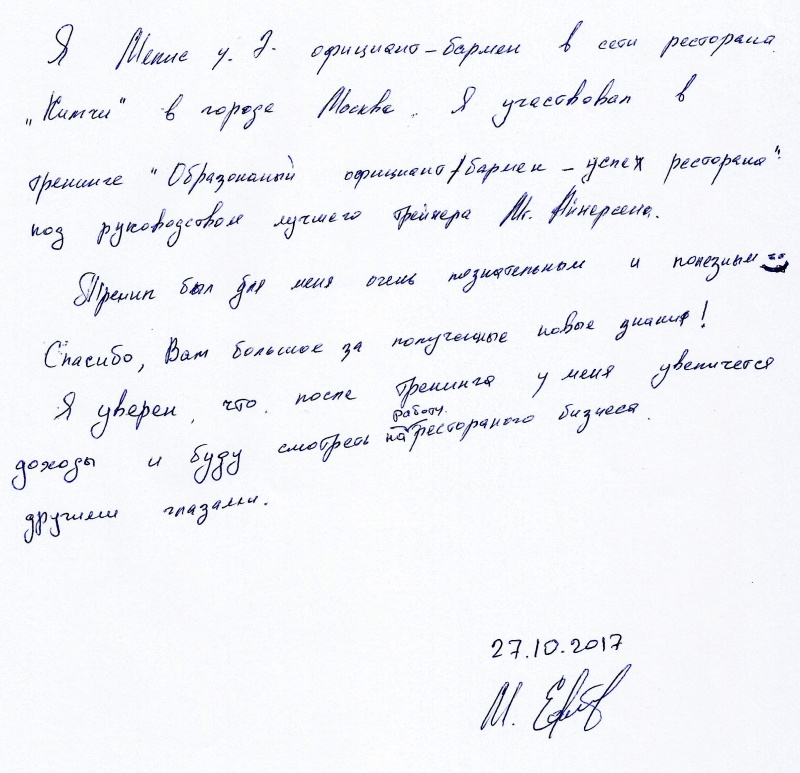 Я Мелис у. Э. официант-бармен в сети ресторана
„Кимчи" в городе Москва. Я участвовал в
тренинге "Образоманый официант/бармен - успех ресторана"
под руководством лучшего трейнера Мг. Айнерсена.
Тренин был для меня очень познательным и полезным
Спасибо, Вам большое за полученные новые знания!
Я уверен, что после тренинга у меня увеличется
доходы и буду смотреть на работу рестораного бизнеса
другими глазами.
27.10.2017
М.